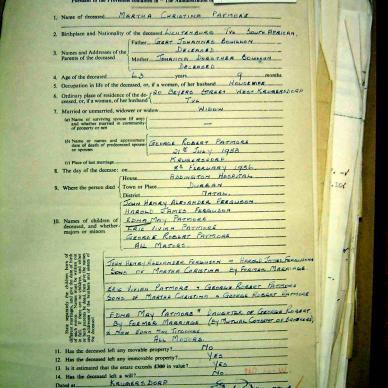 1. Name of deceased MARTHA CHRISTINA PATMORE
2. Birthplace and Nationality of the deceased LICHTENBURG TVL SOUTH AFRICAN
3. Names and Addresses of the Parents of the deceased
Father GERT JOHANNES
DECEASED
Mother JOHANNA DOROTHEA
DECEASED
4. Age of the deceased 63 years 9 months
5. Occupation in life of the deceased, or, if a woman, of her husband HOUSEWIFE
6. Ordinary place of residence of the deceased, or, if a woman, of her husband 20 BEYERS STREET WEST KRUGERSDORP
TVL
7. Married or unmarried, widower or widow WIDOW
(a) Name of surviving spouse (if any) and whether married in community of property or not —
(b) Name or names and approximate date of death of predeceased spouse or spouses
GEORGE ROBERT PATMORE
21st JULY 1953
(c) Place of last marriage KRUGERSDORP
8. The day of the decease: on 8th FEBRUARY 1956
9. Where the person died
House ADDINGTON HOSPITAL
Town or Place DURBAN
District NATAL
10. Names of children of deceased, and whether majors or minors
JOHN HENRY ALEXANDER FERGUSON
HAROLD JAMES FERGUSON
EDNA MAY PATMORE
ERIC VIVIAN PATMORE
GEORGE ROBERT PATMORE
ALL MAJORS
JOHN HENRY ALEXANDER FERGUSON + HAROLD JAMES FERGUSON
SONS OF MARTHA CHRISTINA BY FORMER MARRIAGE
ERIC VIVIAN PATMORE + GEORGE ROBERT PATMORE
SONS OF MARTHA CHRISTINA + GEORGE ROBERT PATMORE
EDNA MAY PATMORE DAUGHTER OF GEORGE ROBERT
BY FORMER MARRIAGE
ALL MAJORS
11. Has the deceased left any movable property? No
12. Has the deceased left any immovable property? YES
13. Is it estimated that the estate exceeds £300 in value? YES
14. Has the deceased left a will? No
Dated at KRUGERSDORP